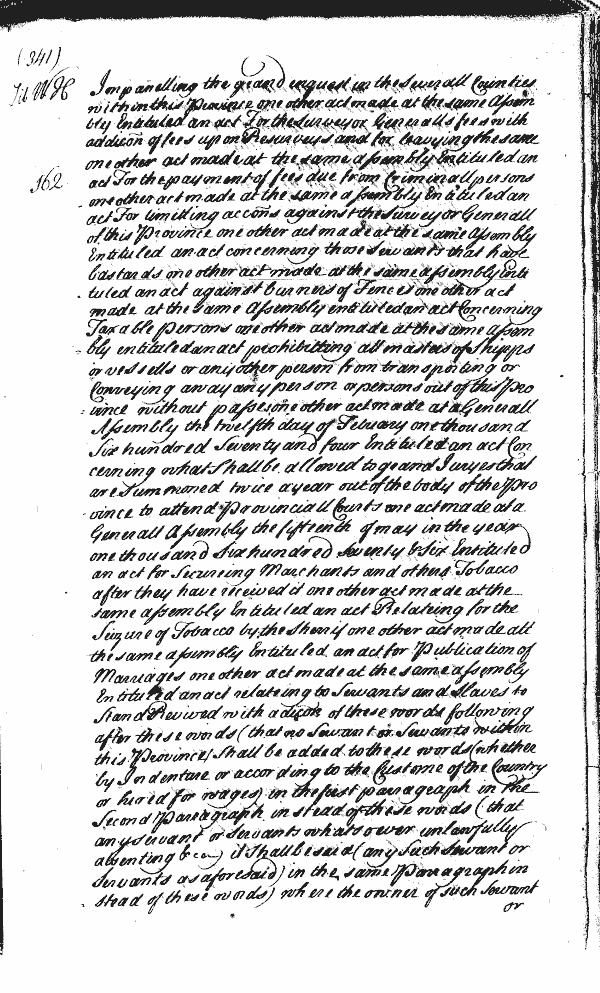 (341)
Lib WH
Impanelling the grand inquest in the severall Counties
within this Province one other act made at the same Assem
bly Entituled an act For the surveyor Generalls fees with
addicon of fees upon Resurveys and for leavying the same
one other act made at the same assembly Entituled an
162
act For the payment of fees due from Criminall persons
one other act made at the same assembly Entituled an
act For limiting accons against the Surveyor Generall
of this Province one other act made at the same Assembly
Entituled an act concerning those servants that have
bastards one other act made at the same assembly Enti
tuled an act against burners of Fences one other act
made at the same Assembly entituled an act Concerning
Taxable persons one other act made at the same Assem
bly entituled an act prohibitting all masters of Shipps
or vessells or any other person from transporting or
Conveying away any person or persons out of this Pro
vince without passes one other act made at a Generall
Assembly the twelfth day of Febuary one thousand
Six hundred Seventy and four Entituled an act Con
cerning what Shall be allowed to grand Juryes that
are Summoned twice a year out of the body of the Pro
vince to attend Provinciall Courts one act made at a
Generall Assembly the fifteenth of may in the year
one thousand Six hundred Seventy & Six Entituled
an act for Secureing Marchants and others Tobacco
after they have received it one other act made at the
same assembly Entituled an act Relateing for the
Seizure of Tobacco by the Sherrif one other act made att
the same assembly Entituled an act for Publication of
Marriages one other act made at the same assembly
Entituled an act relateing to Servants and Slaves to
Stand Revived with adicon of these words following
after these words (that no Servant or Servants within
this Province) Shall be added to these words (whether
by Indenture or according to the Custome of the Country
or hired for wages) in the first paragraph in the
Second Paragraph in stead of these words (that
any servant or servants whatsoever unlawfully
absenting &ca) it Shall be said (any Such Servant or
Servants as aforesaid) in the same Paragraph in
stead of these words) where the owner of such Servant
or